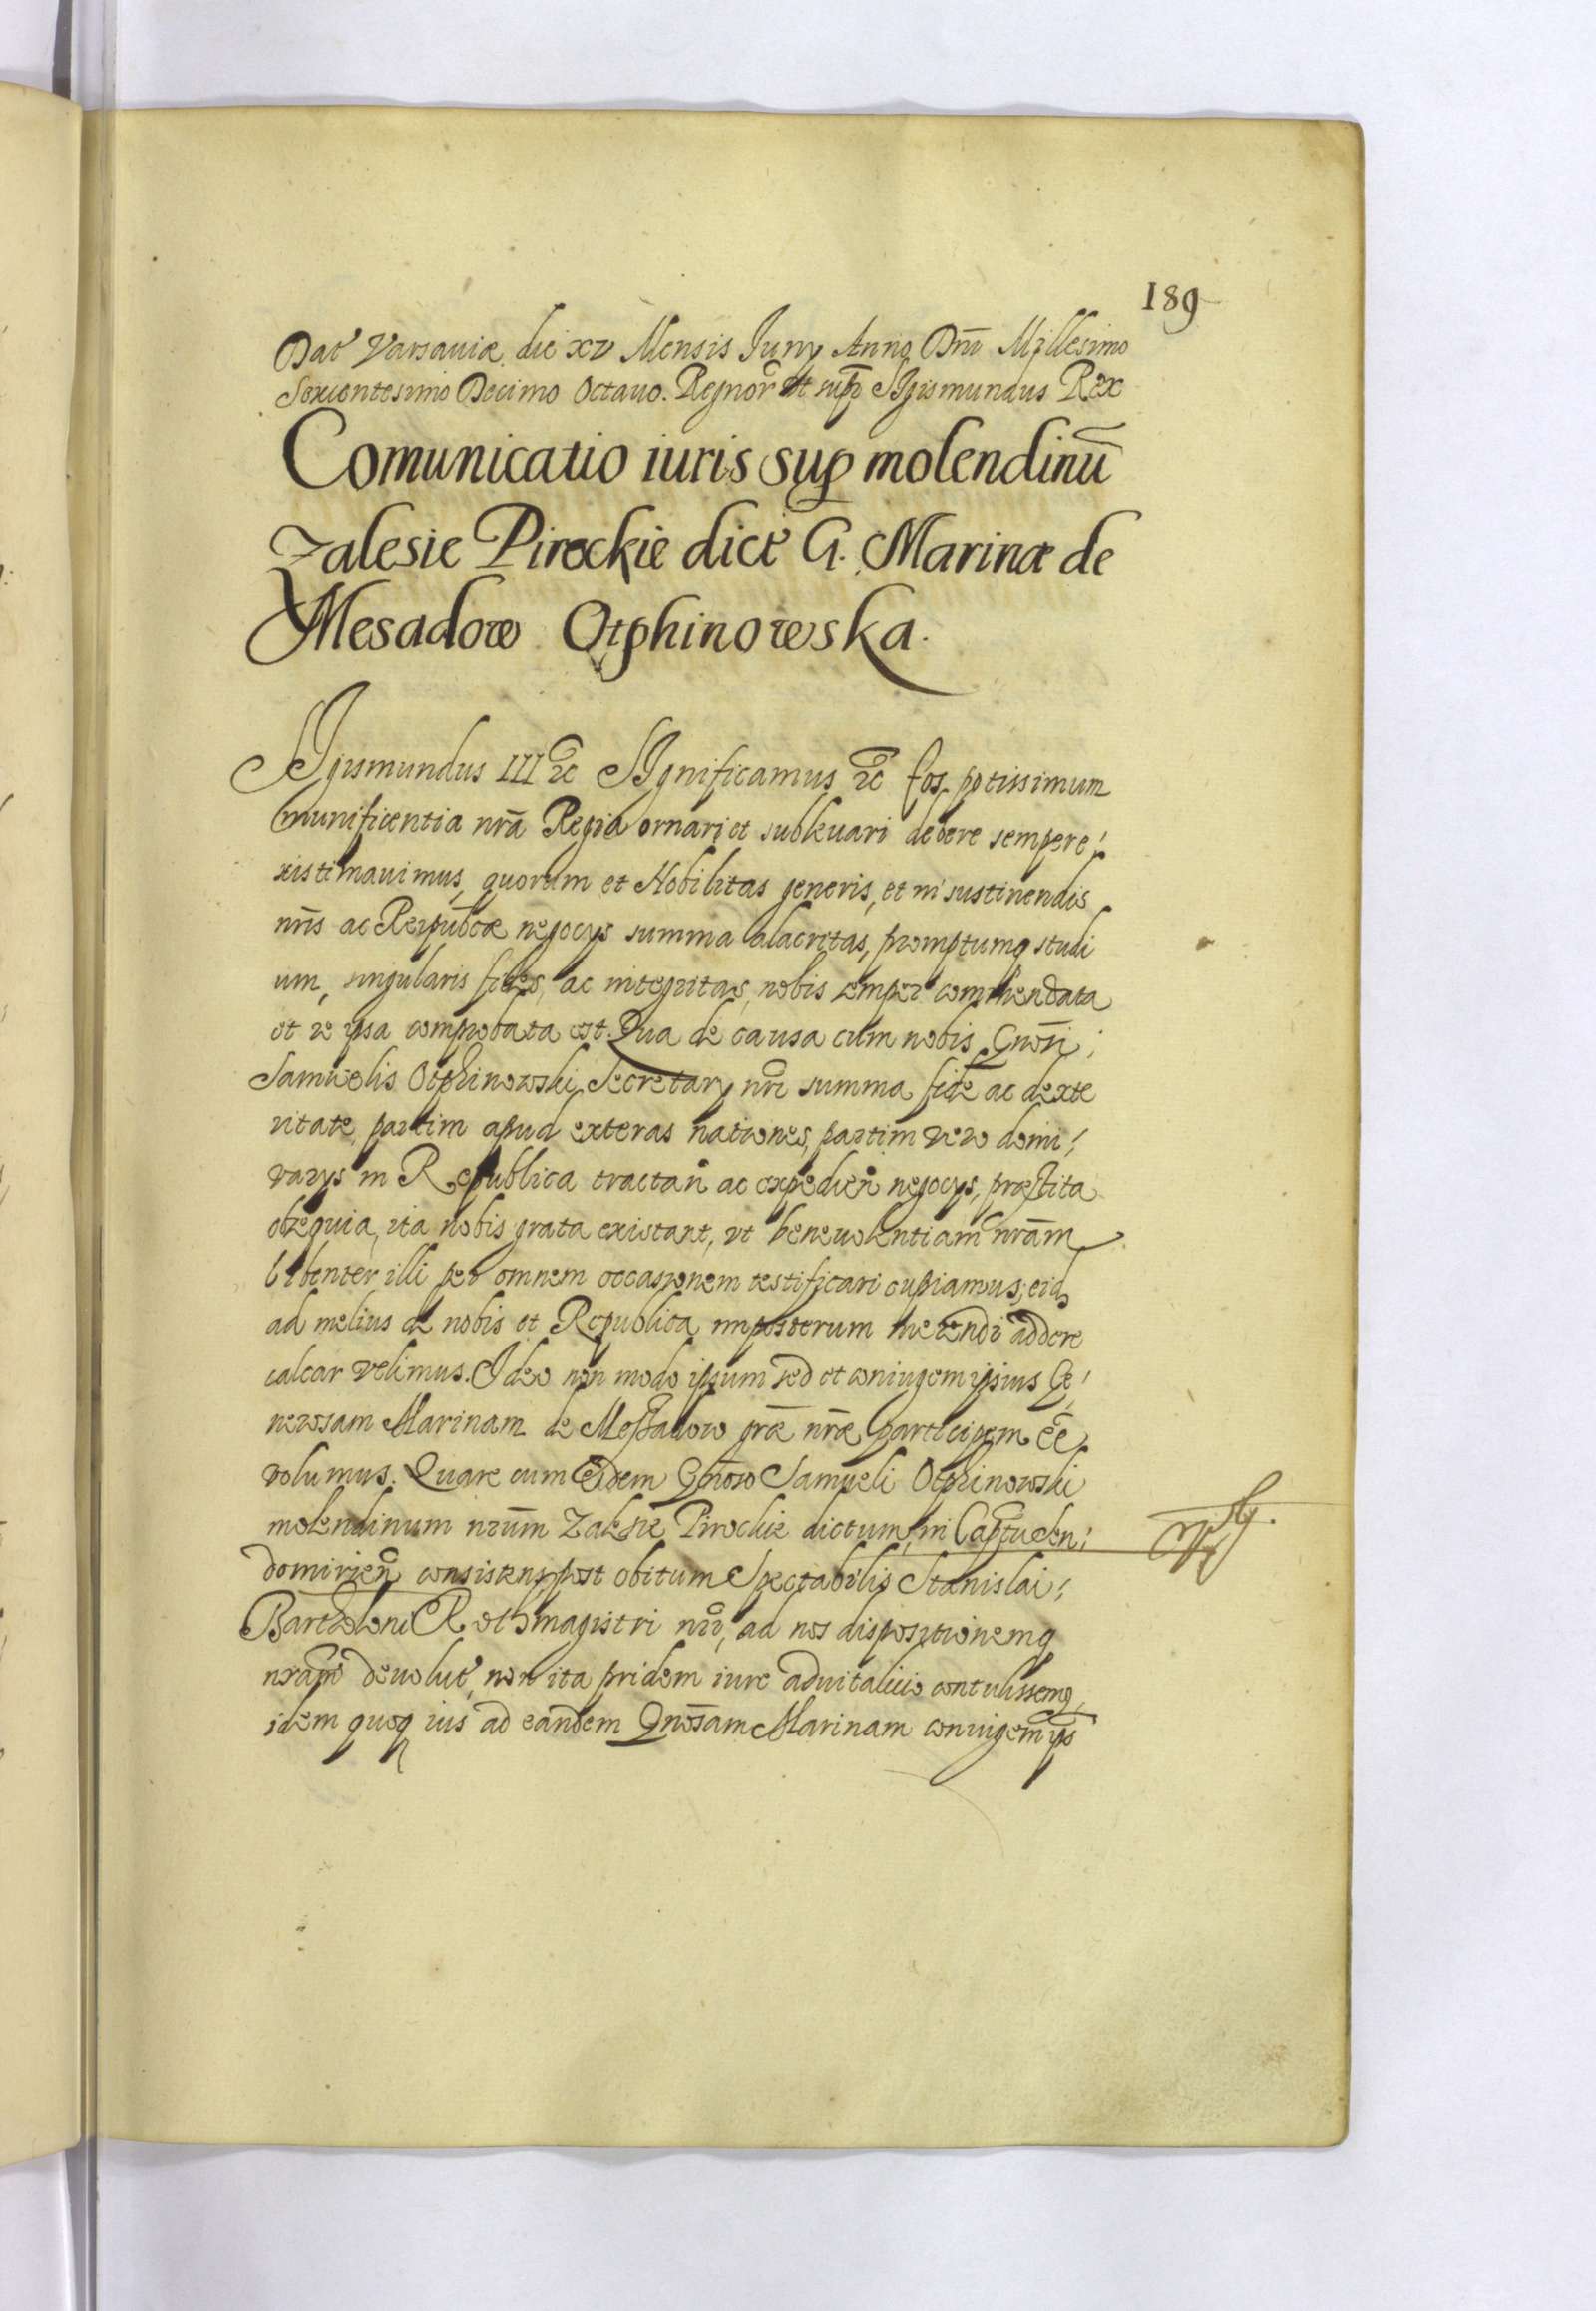 189
Dat Varsaviæ die xv Mensis Juny Anno Dni Millesimo
Sexcentesimo Decimo Octauo. Regnor ut sup Sigismundus Rex
Comunicatio iuris sup molendinū
Zalesie Pirockie dict G. Marinæ de
Mesadow Otphinowska.
Sigismundus III &c Significamus &c Eos potissimum
munificentia nrā Regia ornari et subleuari debere semper e
xistimauimus, quorum et Nobilitas generis, et in sustinendis
nris ac Reipubcæ negocys summa alacritas, promptumq studi
um, singularis fides, ac integritas, nobis semper commendata
et re ipsa comprobata est. Qua de causa cum nobis Gnosi
Samuelis Otphinowski Secretary nri summa fide ac dexte
ritate, partim apud exteras nationes, partim vero domi
varys in Republica tractan ac expedien negocys, præstita
obsequia, ita nobis grata existant, vt beneuolentiam nrām
libenter illi per omnem occasionem testificari cupiamus, eidq
ad melius de nobis et Republica imposterum merendi addere
calcar velimus. Ideo non modo ipsum sed et coniugem ipsius Ge
nerosam Marinam de Messadow græ nræ participem eē
volumus. Quare cum eidem Gnoso Samueli Otphinowski
molendinum nrum Zalesie Pirockie dictum, in Captu Sen
domirien consistens, post obitum Spectabilis Stanislai
Bartholoni Rothmagistri nri, ad nos dispositionemq
nram devolut, non ita pridem iure aduitalicio contulissemq
idem quoq ius ad eandem Gnosam Marinam coniugem ips